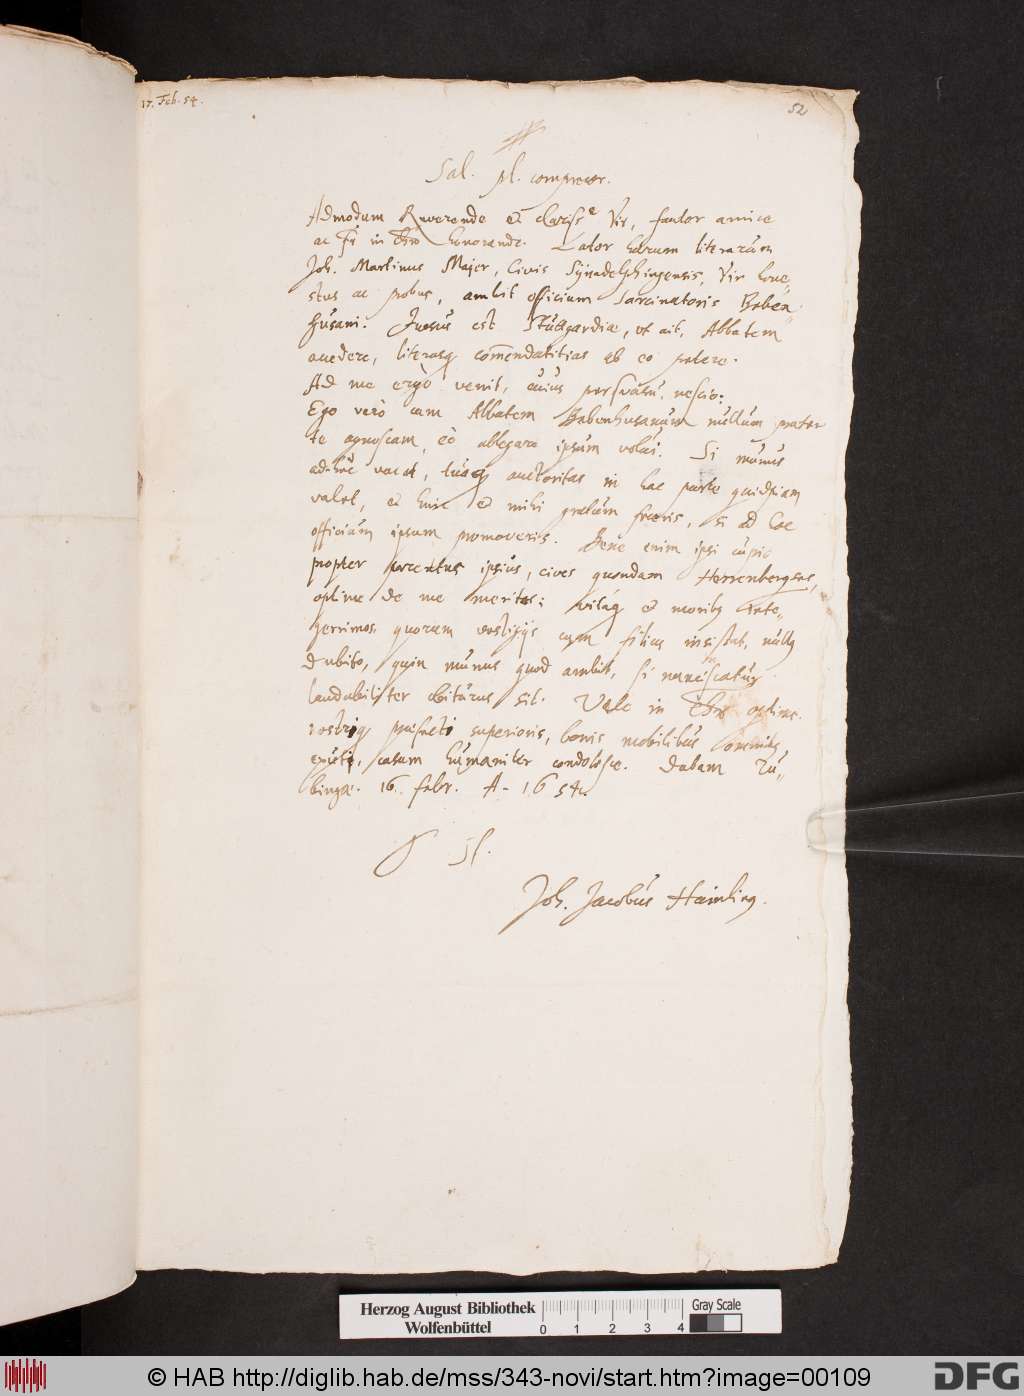 17. Feb. 54.
52
Sal. pl. comprecor.
Admodum Reverende et Clariss.e Vir, fautor amice
ac Fr. in Chro honorande. Lator harum literarum
Joh. Martinus Majer, Civis Synadelphingensis, Vir hone„
stus ac probus, ambit officium Sarcinatoris Beben„
husani. Jussus est Stutgardiæ, ut ait, Abbatem
accedere, literasq commendatitias ab eo petere.
Ad me ergò venit, cuius persuasu, nescio:
Ego verò cum Abbatem Bebenhusanum nullum præter
te agnoscam, eò ablegare ipsum volui. Si munus
ad-huc vacat, tuaq auctoritas in hac parte quidpiam
valet, et huic et mihi gratum feceris, si ad hoc
officium ipsum promoveris. Bene enim ipsi cupio
propter parentes ipsius, cives quondam Herrenbergens,
optime de me meritos; vitâq et moribus inte„
gerrimos. quorum vestigijs cum filius insistat, nullus
dubito, quin munus quod ambit, si nanciscatur
laudabiliter obiturus sit. Vale in Chro optime.
vestriq præfecti superioris, bonis mobilibus omnibus
exuti, casum humaniter condolesce. Dabam Tu„
bingæ. 16. febr. A. 1654.
Joh. Jacobus Hainlin
Herzog August Bibliothek
Wolfenbüttel
0 1 2 3 4
Gray Scale
© HAB http://diglib.hab.de/mss/343-novi/start.htm?image=00109
DFG